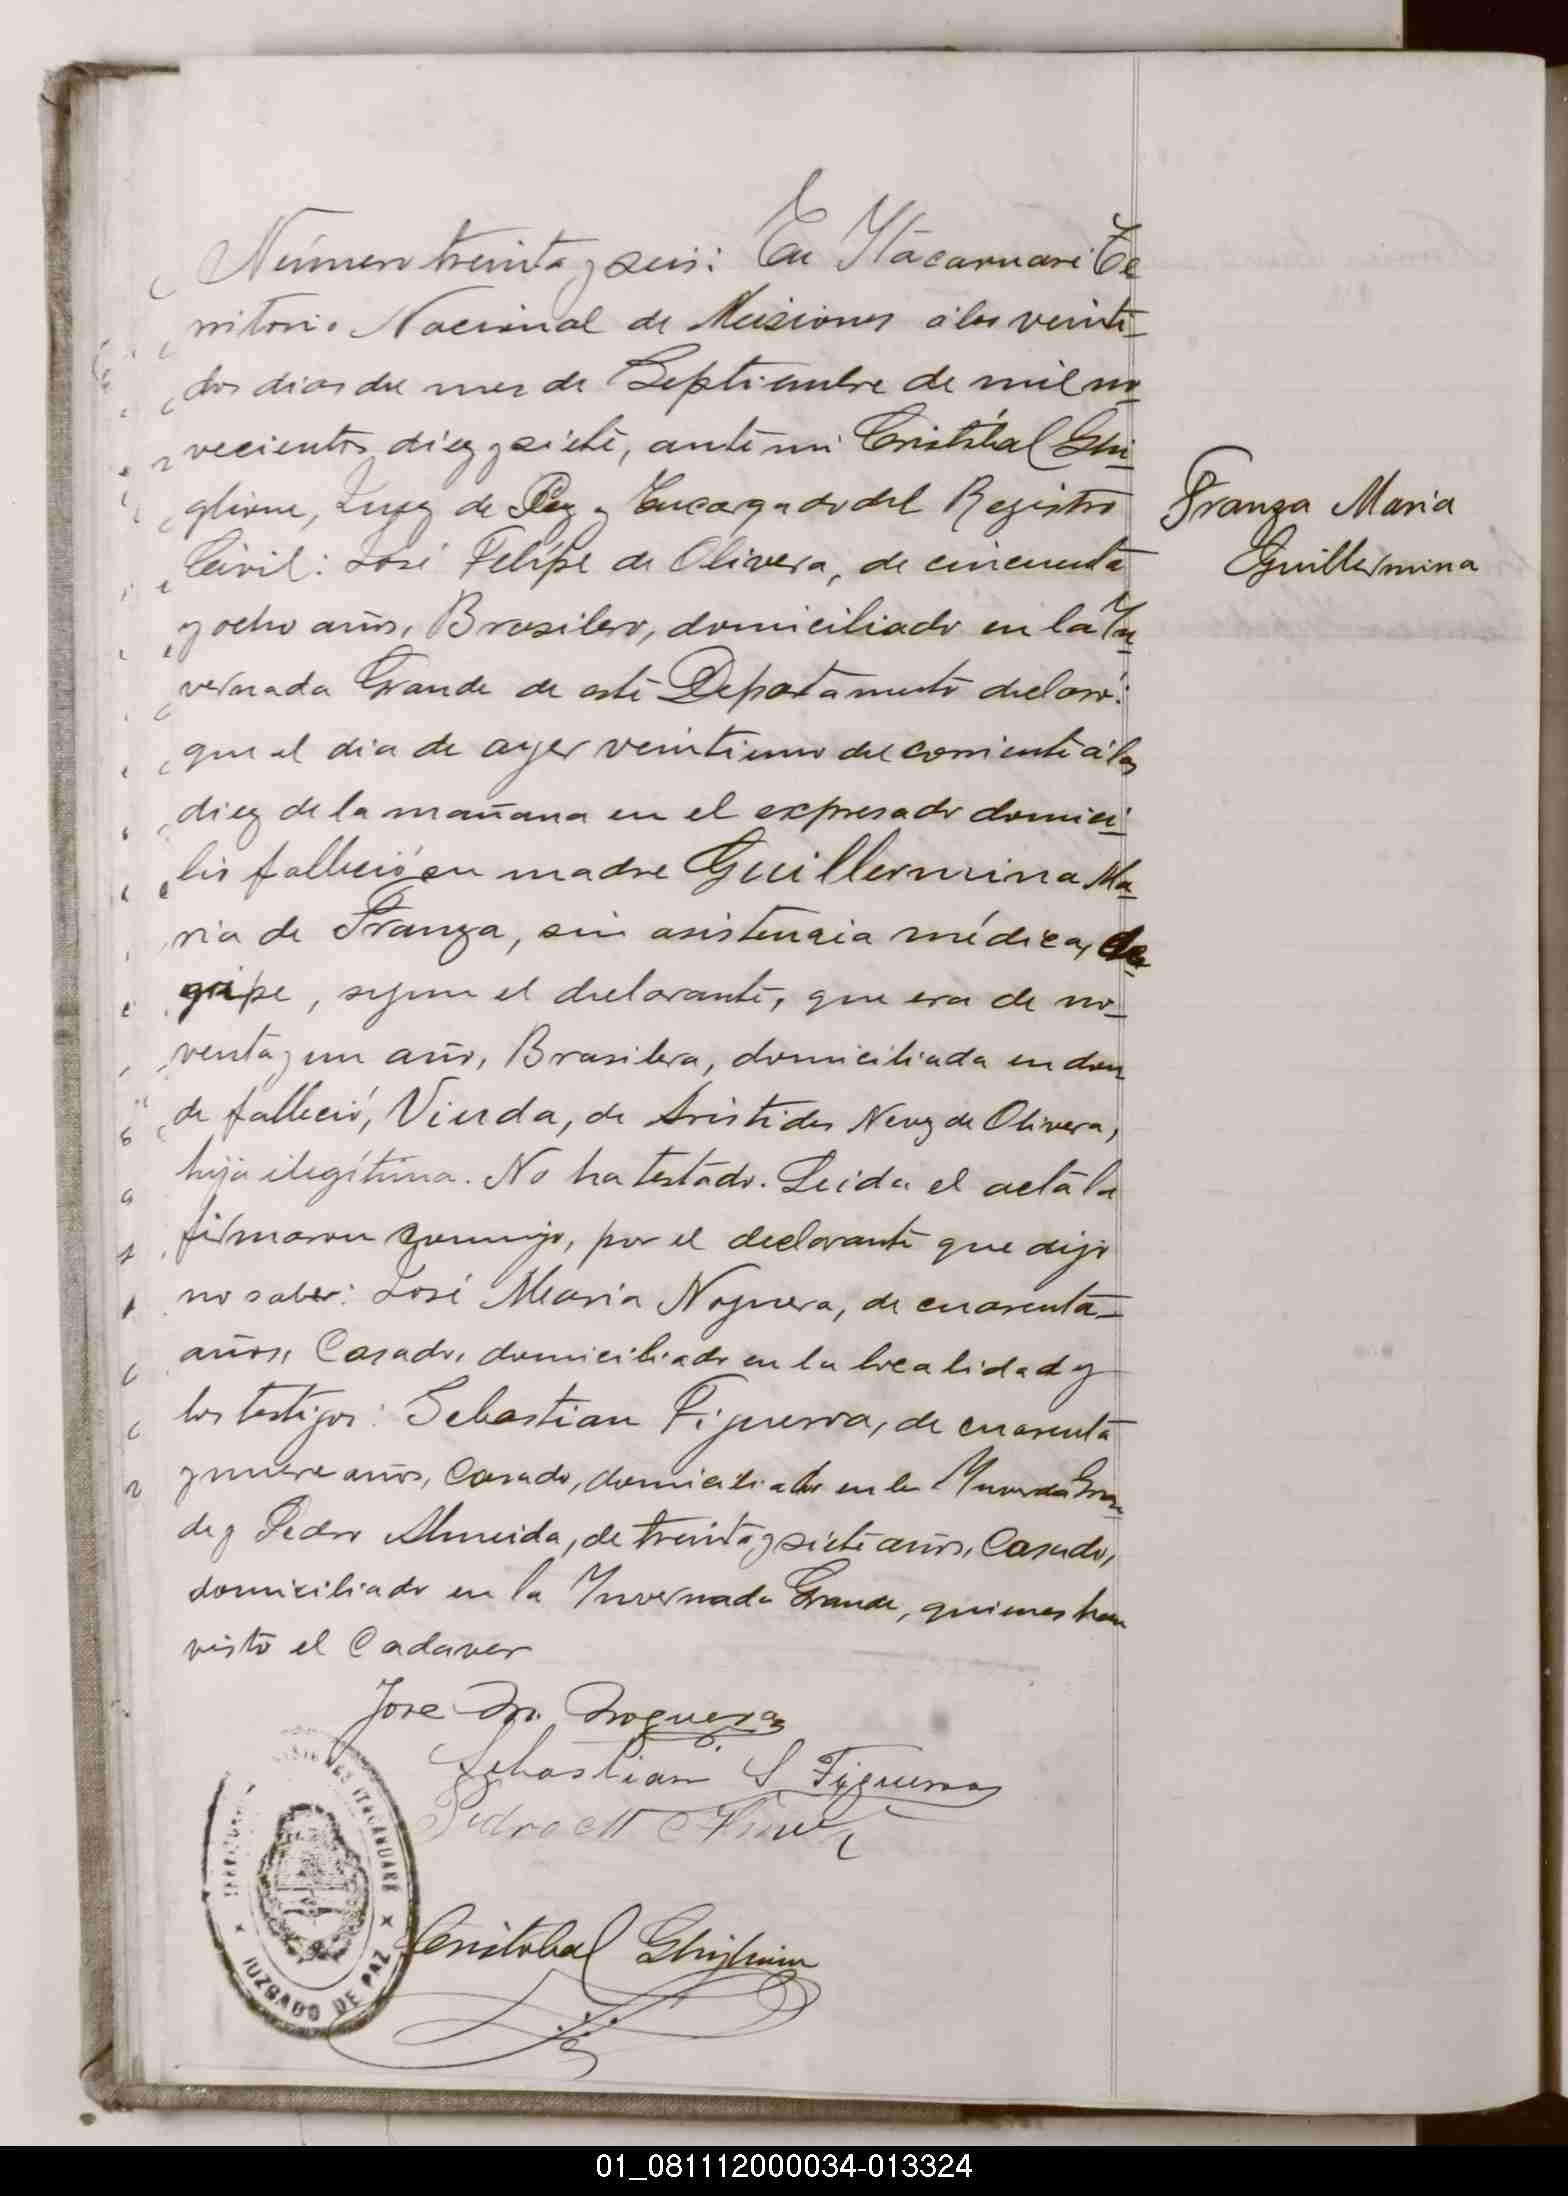 Número treinta y seis: En Itacaruaré Te
rritorio Nacional de Misiones á los veinti-
dos dias del mes de Septiembre de mil no-
vecientos diez y siete, ante mi Cristóbal Ghi-
glione, Juez de Paz y Encargado del Registro
Civil: José Felipe de Olivera, de cincuenta
y ocho años, Brasilero, domiciliado en la In-
vernada Grande de este Departamento declaró:
que el dia de ayer veintiuno del corriente á las
diez de la mañana en el expresado domici-
lio falleció su madre Guillermina Ma-
ria de Franza, sin asistencia médica, de
gripe, segun el declarante, que era de no-
venta y un año, Brasilera, domiciliada en don
de falleció, Viuda, de Aristides Nevez de Olivera,
hija ilegítima. No ha testado. Leida el acta la
firmaron conmigo, por el declarante que dijo
no saber: José Maria Noguera, de cuarenta-
años, Casado, domiciliado en la localidad y
los testigos: Sebastian Figueroa, de cuarenta
y nueve años, Casado, domiciliado en la Invernada Gran
de y Pedro Almeida, de treinta y siete años, Casado,
domiciliado en la Invernada Grande, quienes han
visto el Cadaver
Franza Maria
Guillermina
Jose M. Noguera
Sebastian S Figueroa
Pedro
Cristobal Ghiglione
ITACARUARÉ
JUZGADO DE PAZ
01_081112000034-013324